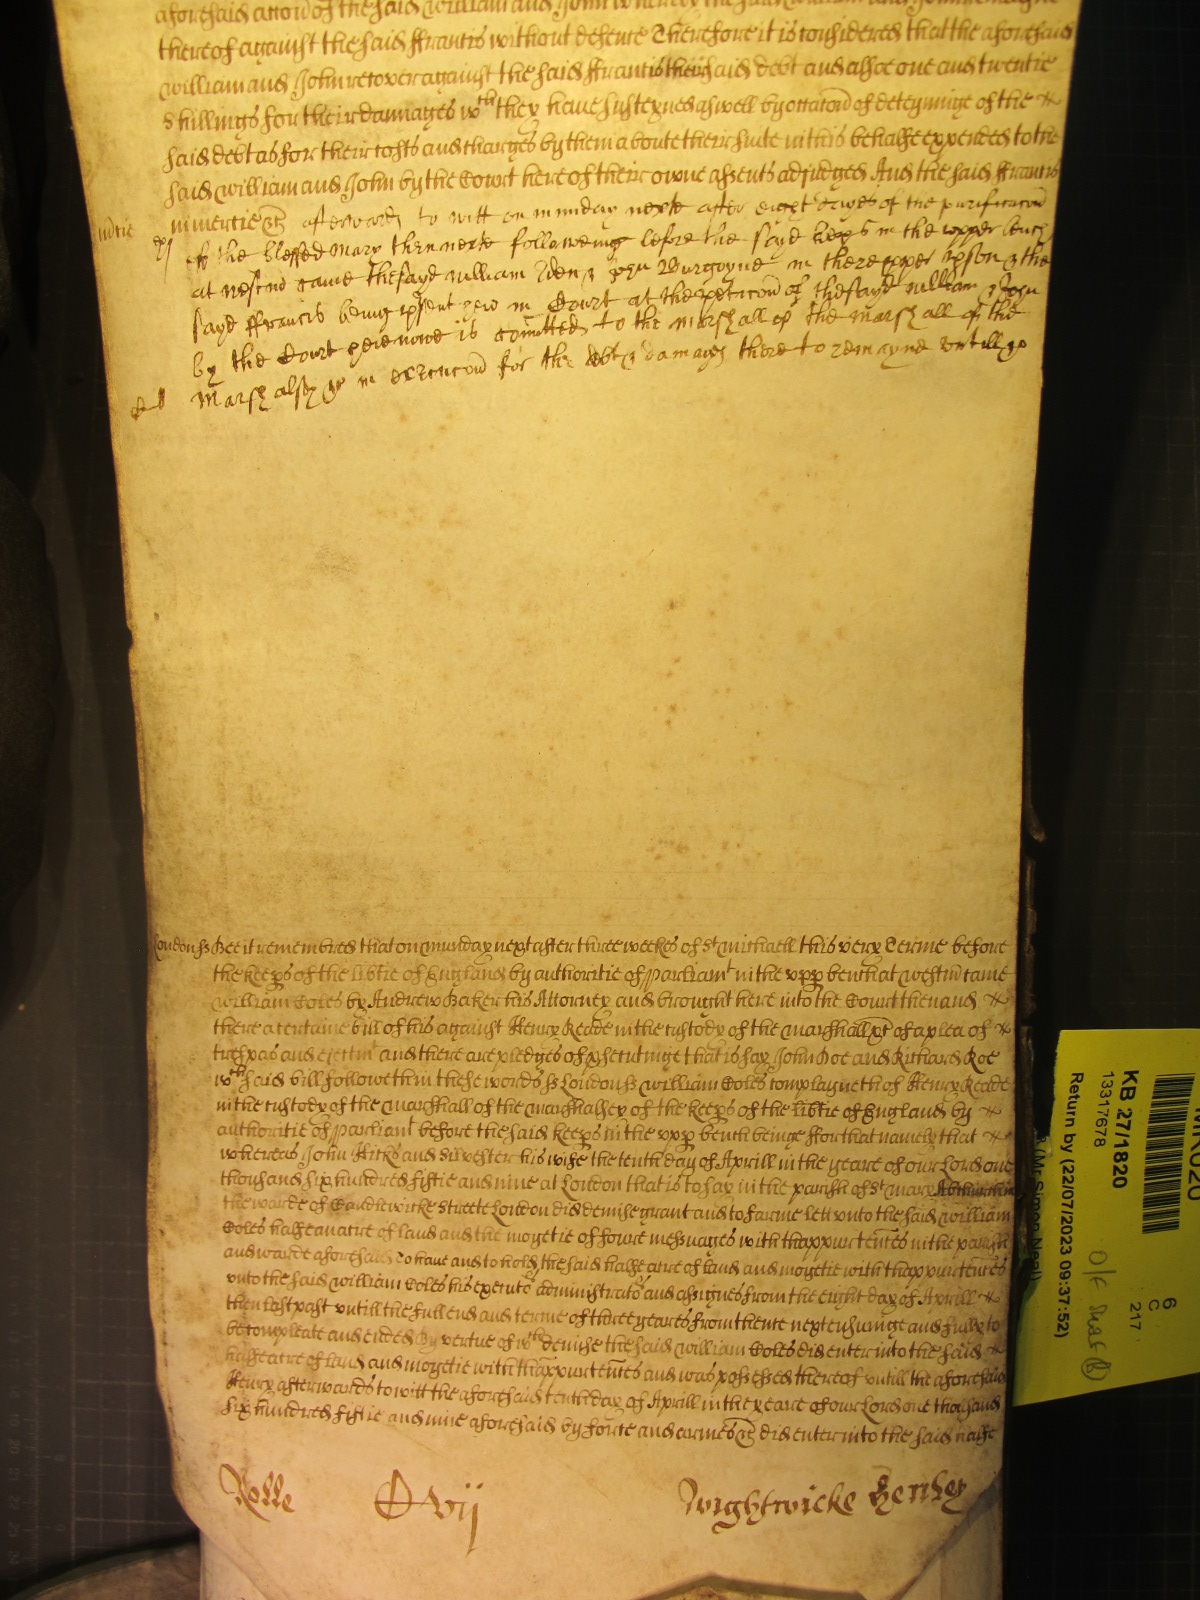 aforesaid attorn of the said William and John whereby the said William and John
thereof against the said ffrancis without defence Therefore it is considered that the aforesaid
William and John recover against the said ffrancis their said debt and alsoe one and twentie
shillings for their damages wch they have susteyned aswell by occacon of deteyninge of the
said debt as for their costs and charges by them aboute their suite in this behalfe expended to the
said William and John by the Court here of their owne assents adjudged And the said ffrancis
in mercie &c afterwards to witt on munday next after eight dayes of the purificacon
of the blessed Mary then next followeing before the sayd keeps in the upper bench
at westm came the sayd William & John Burgoyne in there pper psons & the
sayd ffrancis being psent here in Court at the peticon of the sayd William & John
by the Court here nowe is comitted to the marshall of the marshall of the
Marshalsey &c in execucon for the debt & damages there to remayne untill &c
London ss Bee it remembred that on munday next after three weekes of St Michaell this very Terme before
the keeps of the libtie of England by authoritie of Parliamt in the upp bench at Westm came
William Coles by Andrew Baker his Attorney and brought here into the Court then and
there a certaine bill of his against Henry Reade in the custody of the marshall &c of a plea of
trespas and ejectmt and there are pledges of psecutinge that is say John Doe and Richard Roe
wch said bill followeth in these words ss London ss William Coles complayneth of Henry Reade
in the custody of the marshall of the marshalsey of the keeps of the libtie of England by
authoritie of Parliamt before the said keeps in the upp bench beinge ffor that namely that
whereas John Hicks and his wife the tenth day of Aprill in the yeare of our Lord one
thousand six hundred fiftie and nine at London that is to say in the parish of St Mary Abchurch in
the warde of Candlewicke streete London did demise grant and to farme lett unto the said William
Coles halfe an acre of land and the moyetie of fowre messuages with thappurtences in the parish
and warde aforesaid To have and to hold the said halfe acre of land and moyetie with thappurtences
unto the said William Coles his executs administrats and assignes from the eight day of Aprill
then last past untill the full end and terme of three yeares from thence next ensuinge and fully to
be compleate and ended By vertue of wch demise the said William Coles did enter into the said
halfe acre of land and moyetie with thappurtences and was possessed thereof untill the aforesaid
Henry afterwards to witt the aforesaid tenth day of Aprill in the yeare of our Lord one thousand
six hundred fiftie and nine aforesaid by force and armes &c did enter into the said halfe
Rolle vij Wightwicke Henley
KB 27/1820
13317678
Return by (22/07/2023 09:37:52)
(Mr Simon Neal)
6
C
217